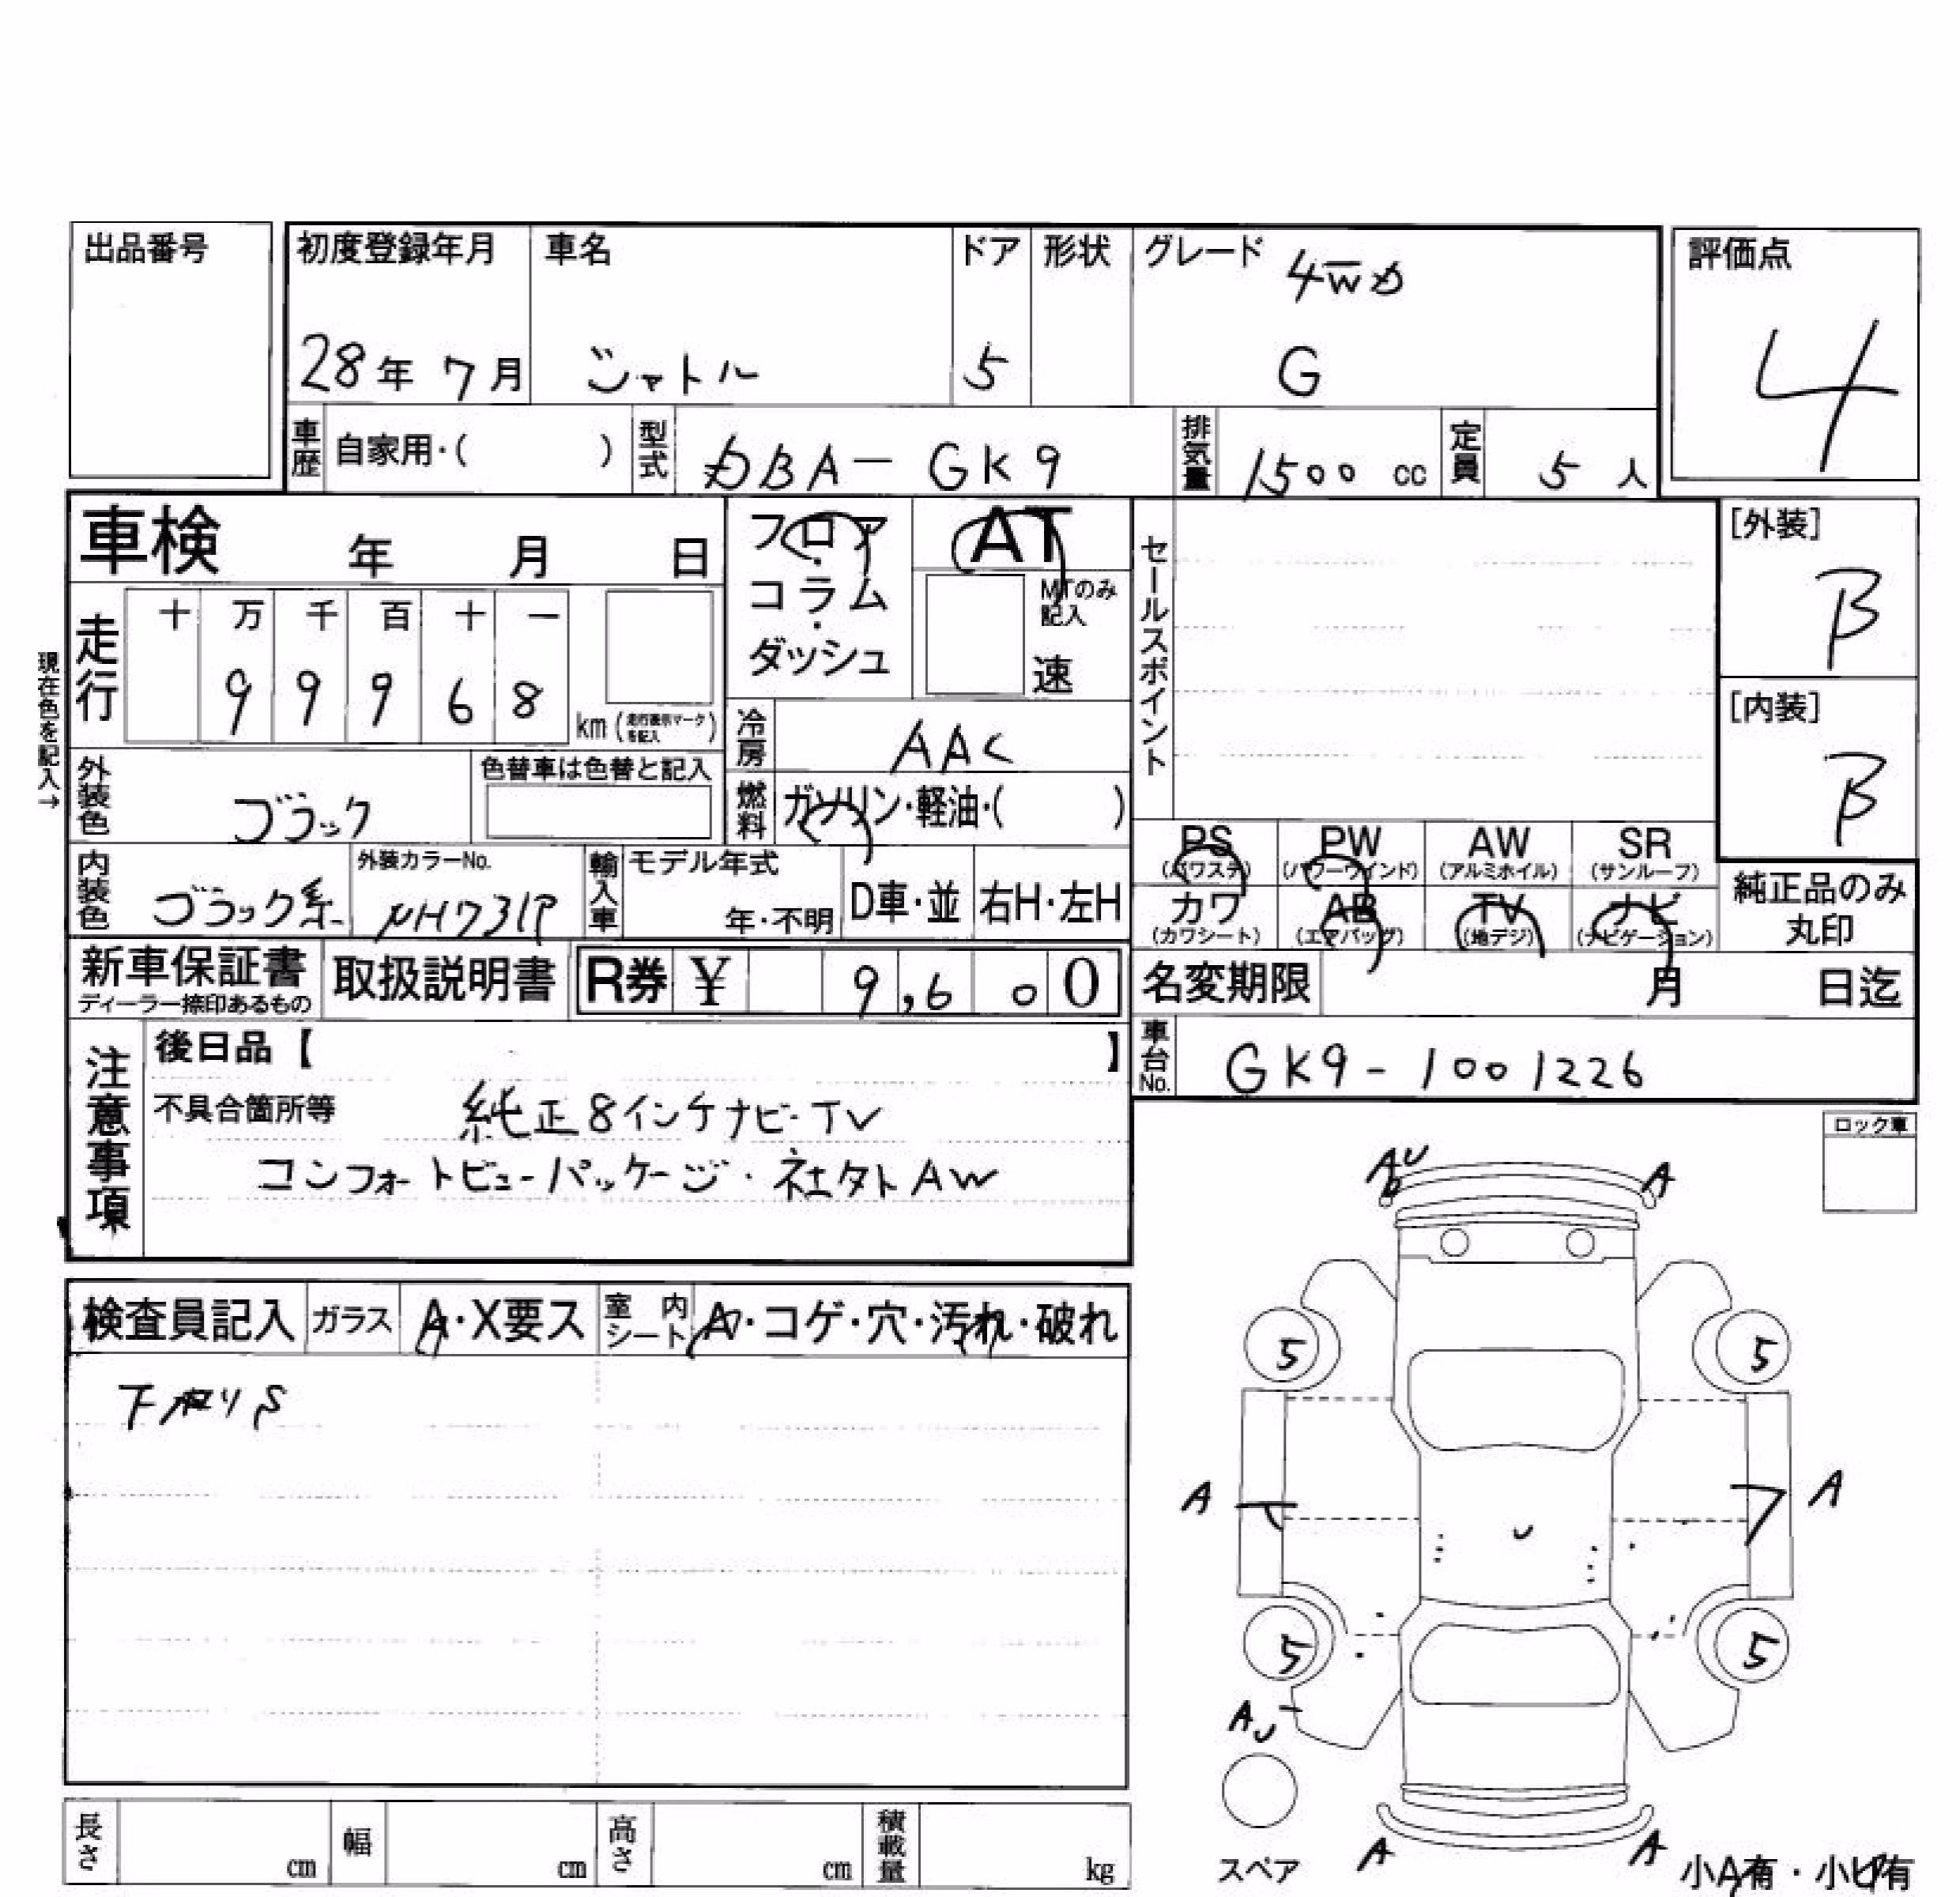 出品番号
初度登録年月 車名 ドア 形状 グレード 4WD 評価点
28年 7月 シャトル 5 G 4
車歴 自家用・( ) 型式 DBA-GK9 排気量 1500 cc 定員 5 人
車検 年 月 日 フロア・コラム・ダッシュ AT
MTのみ記入
速
セールスポイント
[外装] B
[内装] B
現在色を記入→
走行 十 万 千 百 十 一
9 9 9 6 8 km (走行表示マークを記入)
冷房 AAC
外装色 ブラック 色替車は色替と記入 燃料 ガソリン・軽油・( )
内装色 ブラック系 外装カラーNo. NH731P 輸入車 モデル年式 年・不明 D車・並 右H・左H
PS (パワステ) PW (パワーウインド) AW (アルミホイル) SR (サンルーフ)
カワ (カワシート) AB (エアバッグ) TV (地デジ) ナビ (ナビゲーション)
純正品のみ丸印
新車保証書 ディーラー捺印あるもの 取扱説明書 R券 ¥ 9,600 名変期限 月 日迄
車台No. GK9-1001226
注意事項 後日品【 】
不具合箇所等 純正8インチナビ・TV
コンフォートビューパッケージ・社外AW
ロック車
AU A
検査員記入 ガラス A・X要ス 室内シート A・コゲ・穴・汚れ・破れ
下廻りS
5 5
A A
U
5 5
AU
スペア A A 小A有・小U有
長さ cm 幅 cm 高さ cm 積載量 kg